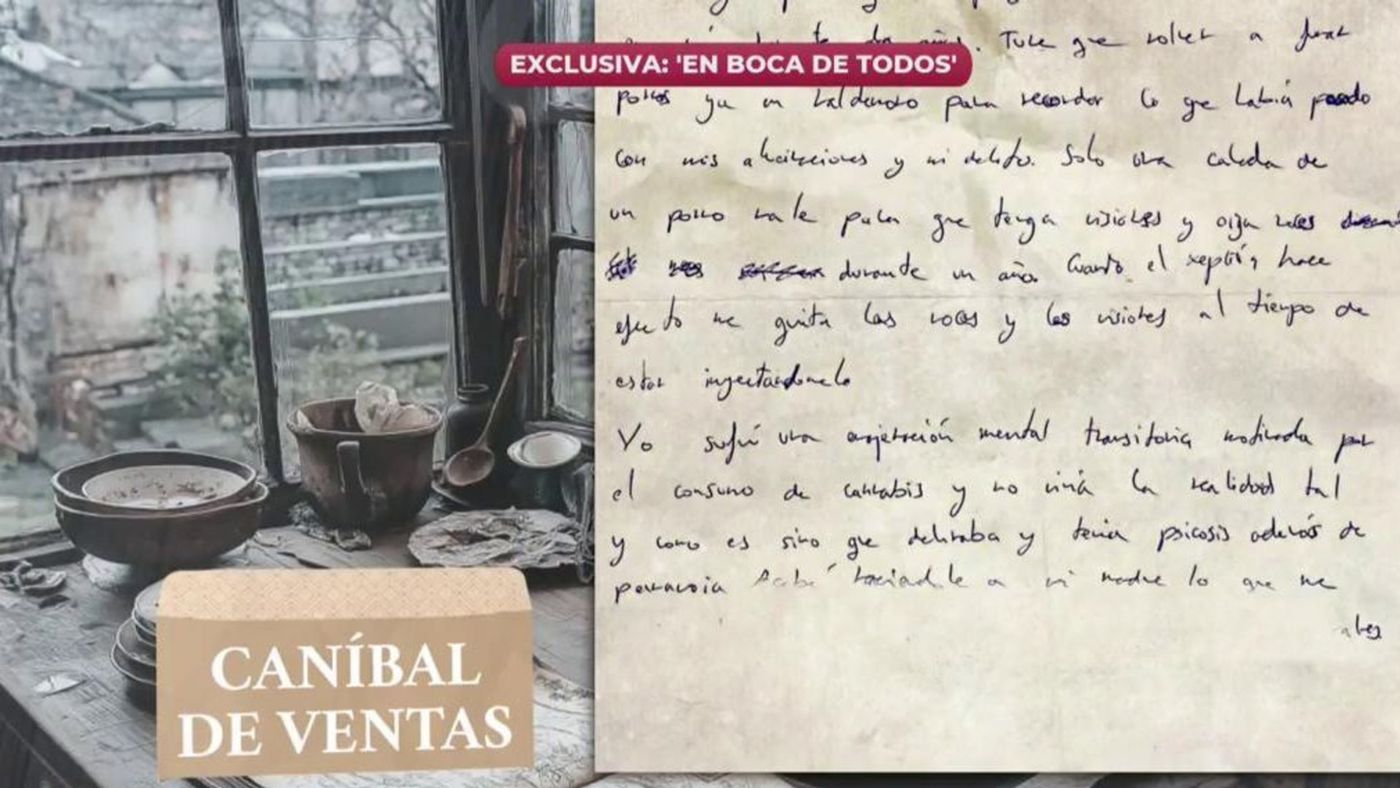 EXCLUSIVA: 'EN BOCA DE TODOS'
años. Tuve que volver a fumar
porros ya en Valdemoro para recordar lo que había pasado
con mis alucinaciones y mi delito. Solo una calada de
un porro vale para que tenga visiones y oiga voces
durante un año. Cuando el xeplión hace
efecto me quita las voces y las visiones al tiempo de
estar inyectandomelo
Yo sufrí una enajenación mental transitoria motivada por
el consumo de cannabis y no vivía la realidad tal
y como es sino que deliraba y tenia psicosis además de
paranoia Acabé haciendole a mi madre lo que me
CANÍBAL
DE VENTAS